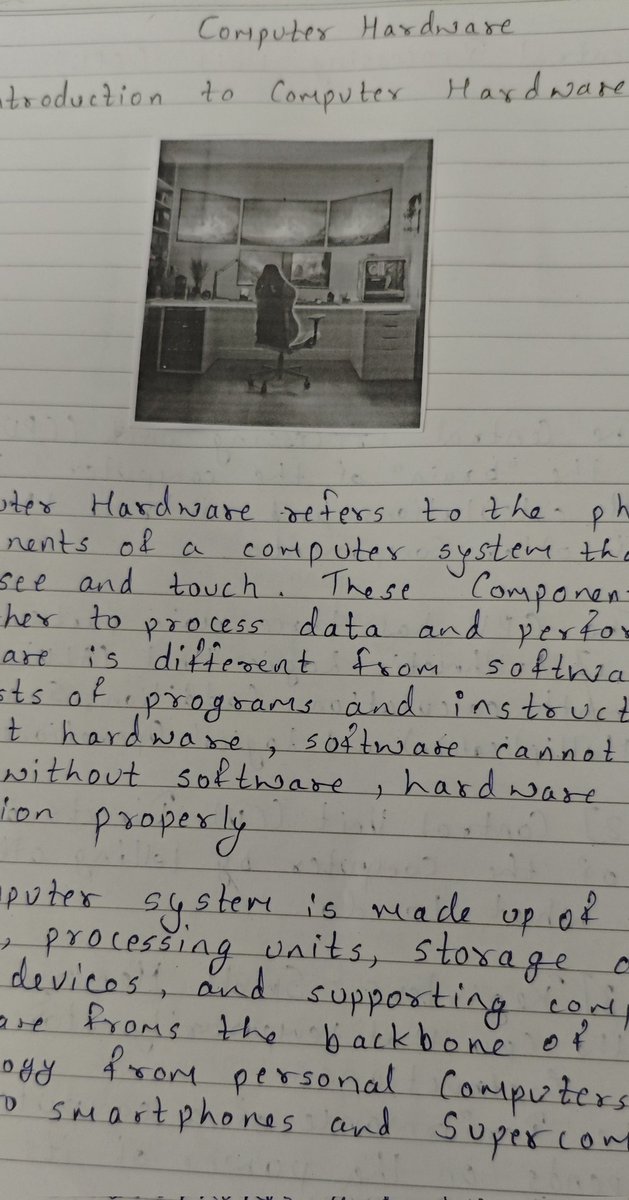 Computer Hardware
ntroduction to Computer Hardware
uter Hardware refers to the ph
nents of a computer system tha
see and touch. These Componen
her to process data and perfor
are is different from softwa
sts of programs and instruct
t hardware, software cannot
without software, hardware
ion properly
puter system is made up of
, processing units, storage d
devices, and supporting comp
are froms the backbone of
ogy from personal Computers
o smartphones and Supercom